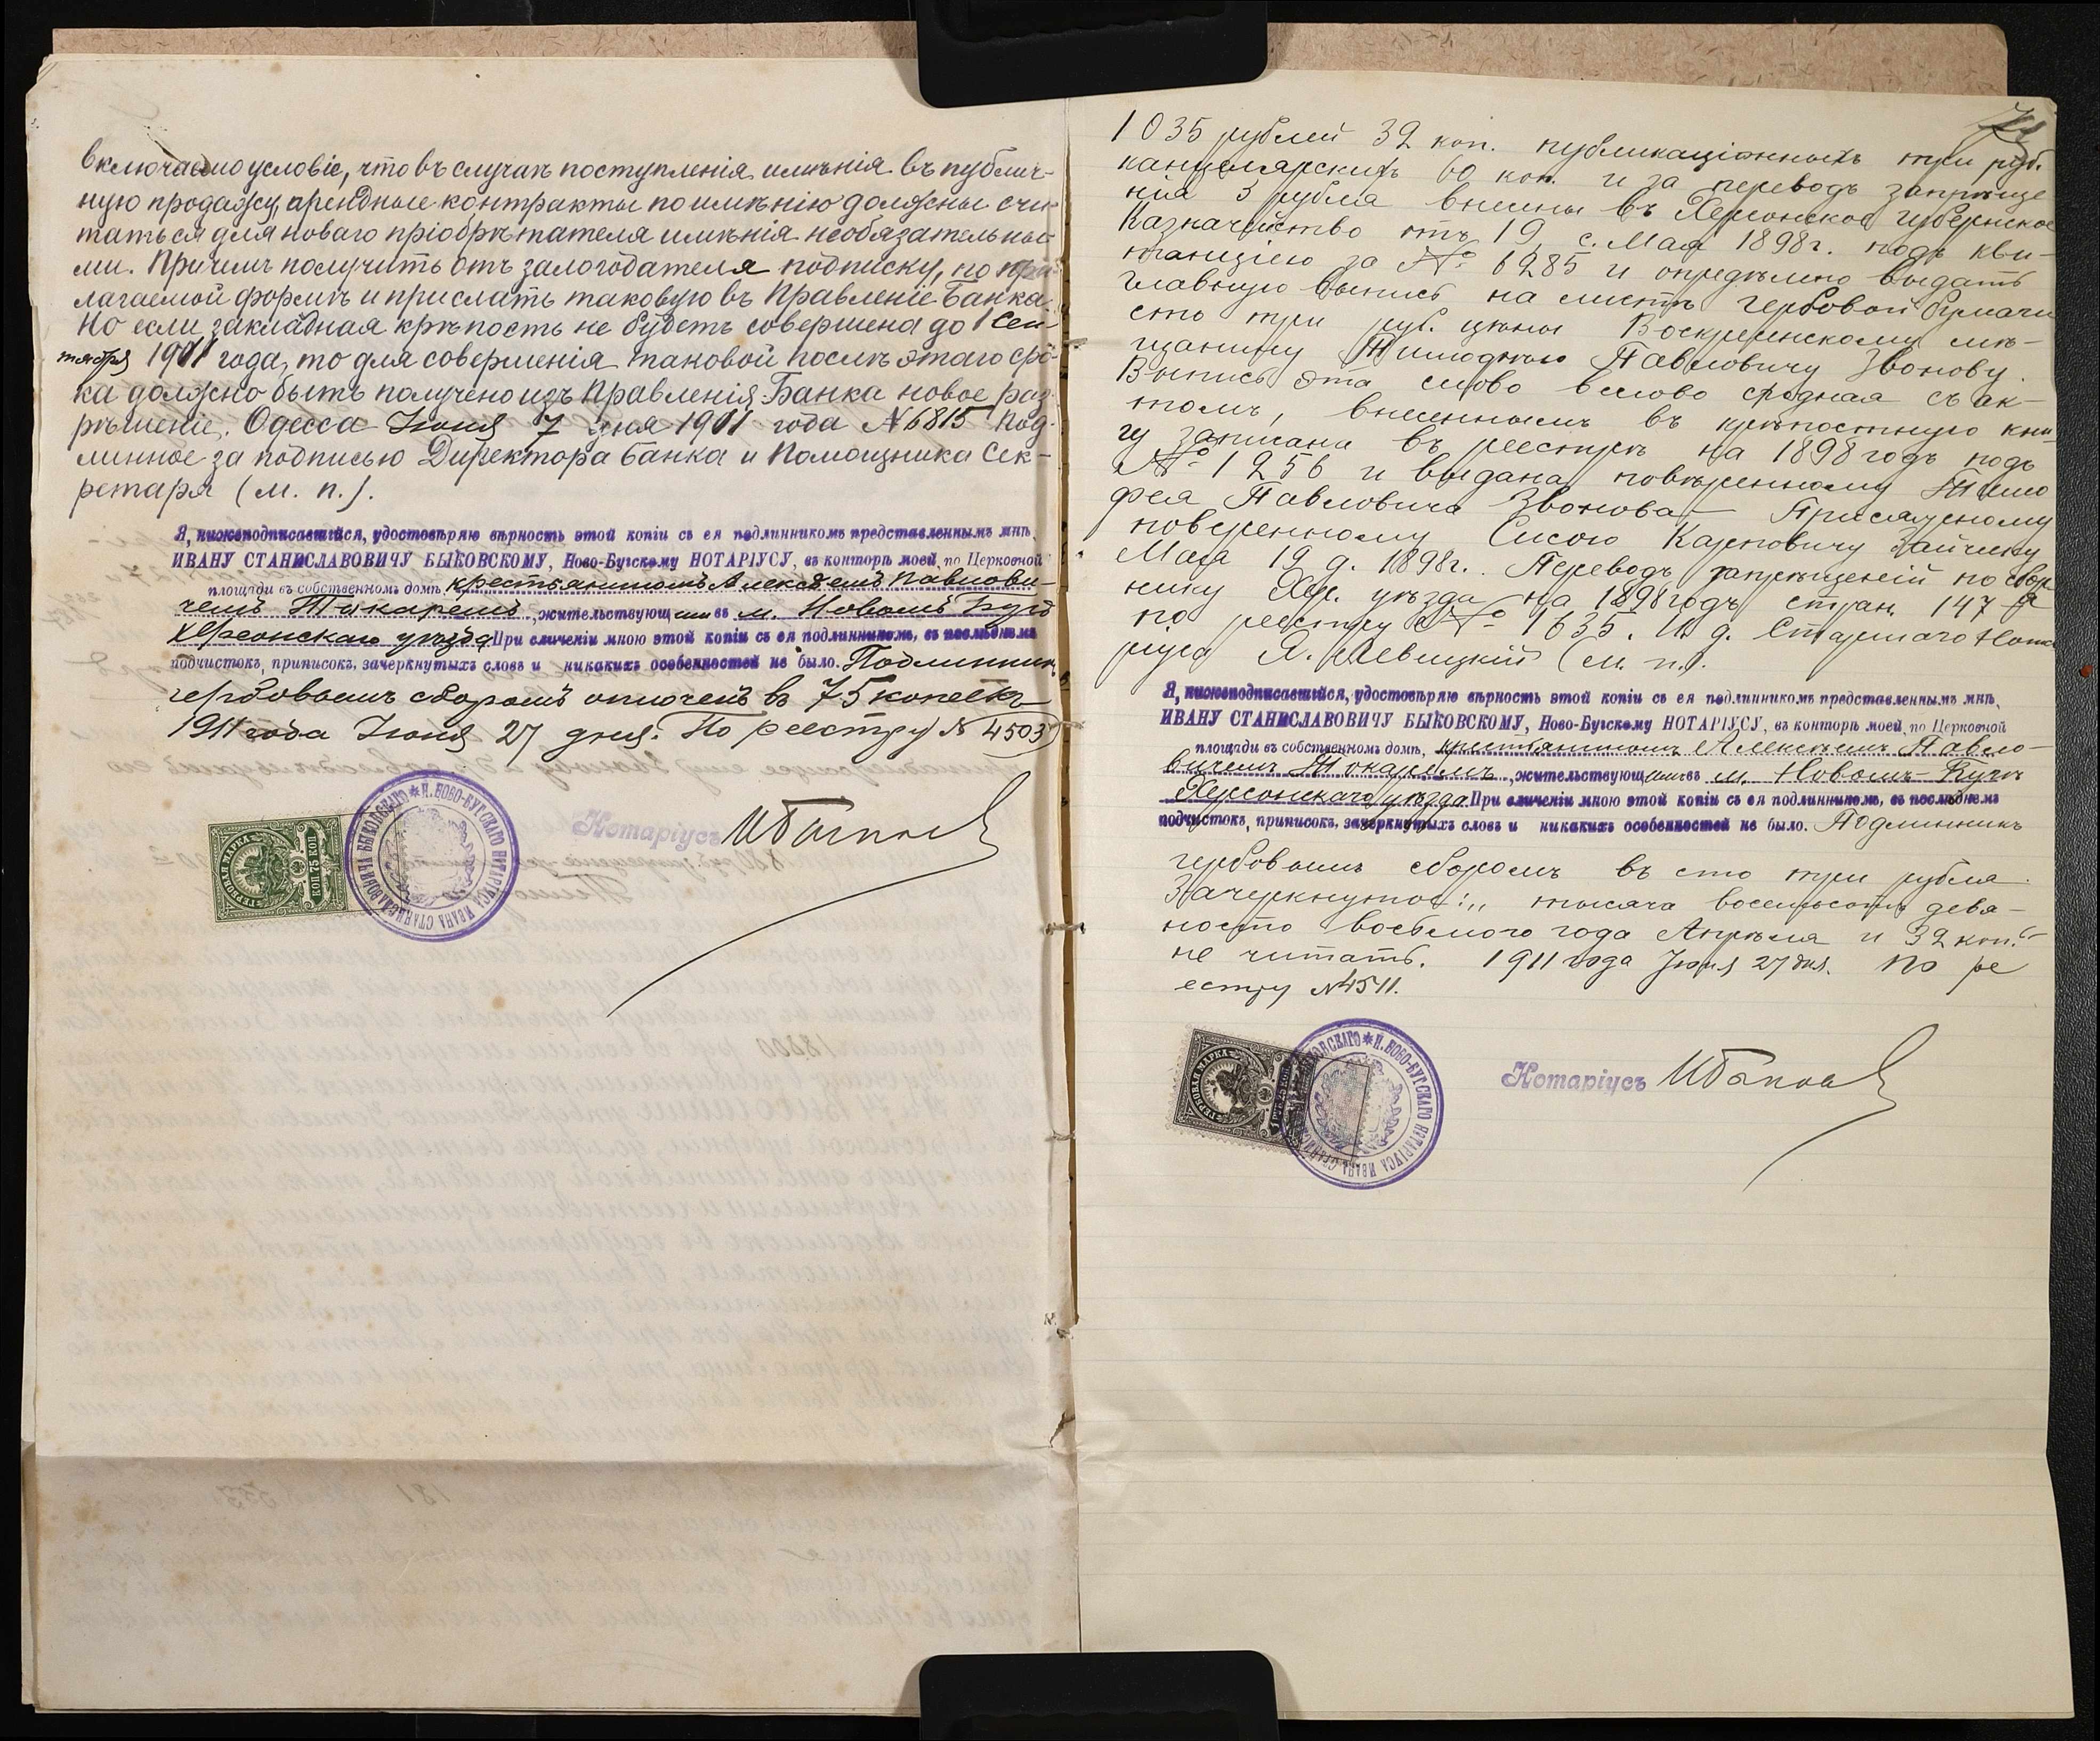 включаемо условіе, что въ случаѣ поступленія имѣнія въ публич-
ную продажу, арендные контракты по имѣнію должны счи-
таться для новаго пріобрѣтателя имѣнія необязательны-
ми. Причемъ получить отъ залогодателя подписку, по при-
лагаемой формѣ и прислать таковую въ Правленіе Банка.
Но если закладная крѣпость не будетъ совершена до 1 Сен-
тября 1911 года, то для совершенія таковой послѣ этого сро-
ка должно быть получено изъ Правленія Банка новое раз-
рѣшеніе. Одесса Іюня 7 дня 1911 года № 6815 Под-
линное за подписью Директора Банка и Помощника Сек-
ретаря (М. П.).
Я, нижеподписавшійся, удостовѣряю вѣрность этой копіи съ ея подлинникомъ представленнымъ мнѣ,
ИВАНУ СТАНИСЛАВОВИЧУ БЫКОВСКОМУ, Ново-Бугскому НОТАРІУСУ, въ конторѣ моей, по Церковной
площади въ собственномъ домѣ, крестьяниномъ Алексѣемъ Павлови-
чемъ Токаремъ, жительствующимъ въ м. Новомъ Бугѣ
Херсонскаго уѣзда При сличеніи мною этой копіи съ ея подлинникомъ, въ послѣднемъ
подчистокъ, приписокъ, зачеркнутыхъ словъ и никакихъ особенностей не было. Подлинникъ
гербовымъ сборомъ оплоченъ в 75 копѣекъ
1911 года Іюня 27 дня. По реестру № 4503
ГЕРБОВАЯ МАРКА
КОП. 75 КОП.
Н. НОВО-БУГСКАГО НОТАРІУСА ИВАНА СТАНИСЛАВОВИЧА БЫКОВСКАГО
Нотаріусъ ИБыков
1035 рублей 32 коп. публикаціонныхъ три руб.
канцелярскихъ 60 коп. и за переводъ запреще
нія 3 рубля внесены въ Херсонское Губернское
Казначейство отъ 19 с. Мая 1898 г. подъ кви-
танціею за № 6285 и опредѣлено выдать
главную выпись на листѣ гербовой бумаги
сто три руб. цѣны Воскресенскому мѣ-
щанину Тимофѣю Павловичу Звонову.
Выпись эта слово в слово сходная съ ак-
томъ, внесеннымъ въ крѣпостную кни-
гу записана въ реестръ на 1898 годъ подъ
№ 1256 и выдана повѣренному Тимо
фея Павловича Звонова — Присяжному
повѣренному Сысою Карповичу Зайченку
Мая 19 д. 1898 г. Переводъ запрещеній по сбор
нику Хер. уѣзда на 1898 годъ стран. 147-я
по реестру № 1635. И. д. Старшаго Нота
ріуса Я. Левицкій (М. П.).
Я, нижеподписавшійся, удостовѣряю вѣрность этой копіи съ ея подлинникомъ представленнымъ мнѣ,
ИВАНУ СТАНИСЛАВОВИЧУ БЫКОВСКОМУ, Ново-Бугскому НОТАРІУСУ, въ конторѣ моей, по Церковной
площади въ собственномъ домѣ, крестьяниномъ Алексѣемъ Павло-
вичемъ Токаремъ, жительствующимъ въ м. Новомъ-Бугѣ
Херсонскаго уѣзда При сличеніи мною этой копіи съ ея подлинникомъ, въ послѣднемъ
подчистокъ, приписокъ, зачеркнутыхъ словъ и никакихъ особенностей не было. Подлинникъ
гербовымъ сборомъ въ сто три рубля.
Зачеркнутое: „тысяча восемьсотъ девя-
носто восьмого года Апрѣля и 32 коп.“
не читать. 1911 года Іюня 27 дня. По ре
естру № 4511.
ГЕРБОВАЯ МАРКА
Н. НОВО-БУГСКАГО НОТАРІУСА ИВАНА
Нотаріусъ ИБыков